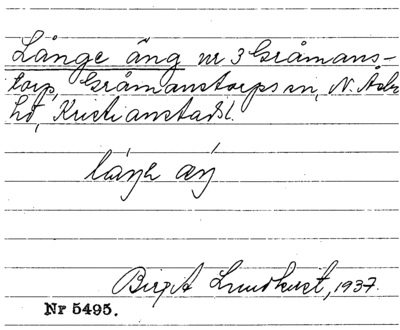 Långe äng nr 3 Gråmans-
torp, Gråmanstorps sn, N. Åsbo
hd, Kristianstads l.
Birgit Lundkvist, 1937.
Nr 5495.